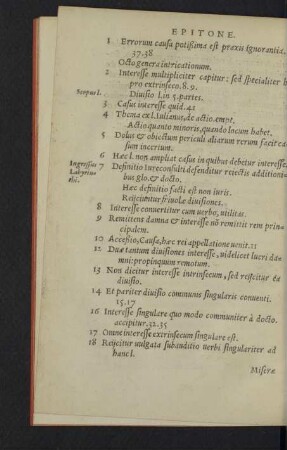 EPITONE.
1 Errorum causa potissima est praxis ignorantia.
37.38
Octo genera intricationum.
2 Interesse multipliciter capitur: sed specialiter h
pro extrinseco. 8.9.
Scopus l. Diuisio l. in 5. partes.
3 Casus interesse quid. 41
4 Thema ex l. Iulianus, de actio. empt.
Actio quanto minoris, quando locum habet.
5 Dolus & obiectum periculi aliarum rerum facit ca
sum incertum.
6 Hæc l. non ampliat casus in quibus debetur interesse.
Ingressus Labyrinthi. 7 Definitio Iureconsulti defenditur reiectis additioni
bus glo. & docto.
Hæc definitio facti est non iuris.
Reijcitur friuolæ diuisiones.
8 Interesse conuertitur cum uerbo, utilitas.
9 Remittens damna & interesse nō remittit rem prin
cipalem.
10 Accessio, Causa, hæc rei appellatione uenit. 11
12 Duæ tantum diuisiones interesse, uidelicet lucri dam
ni: propinquum remotum.
13 Non dicitur interesse intrinsecum, sed reijcitur ea
diuisio.
14 Et pariter diuisio communis singularis conuenti.
15.17
16 Interesse singulare quo modo communiter à docto.
accipitur. 32.35
17 Omne interesse extrinsecum singulare est.
18 Reijcitur uulgata subauditio uerbi singulariter ad
hanc l.
Miseræ